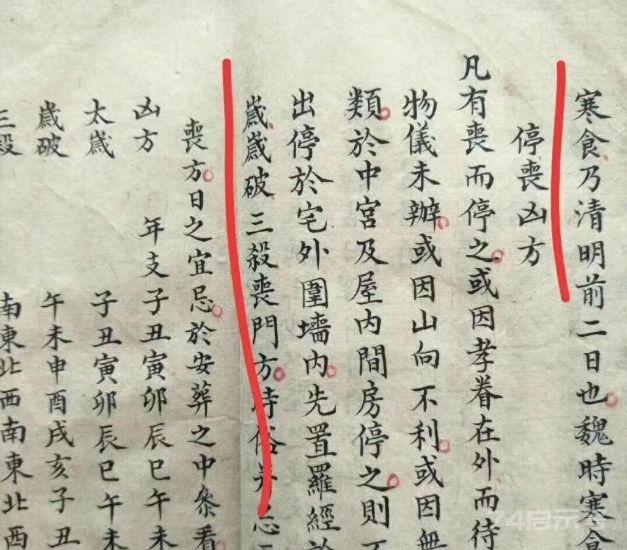 寒食乃清明前二日也魏時寒食
停喪凶方
凡有喪而停之或因孝眷在外而待
物儀未辦或因山向不利或因無
類於中宮及屋內間房停之則不
出停於宅外圍墻內先置羅經於
歲歲破三殺喪門方時俗忌
喪方日之宜忌於安葬之中叅看
凶方 年支子丑寅卯辰巳午未
太歲 子丑寅卯辰巳午未
歲破 午未申酉戌亥子丑
三殺 南東北西南東北西